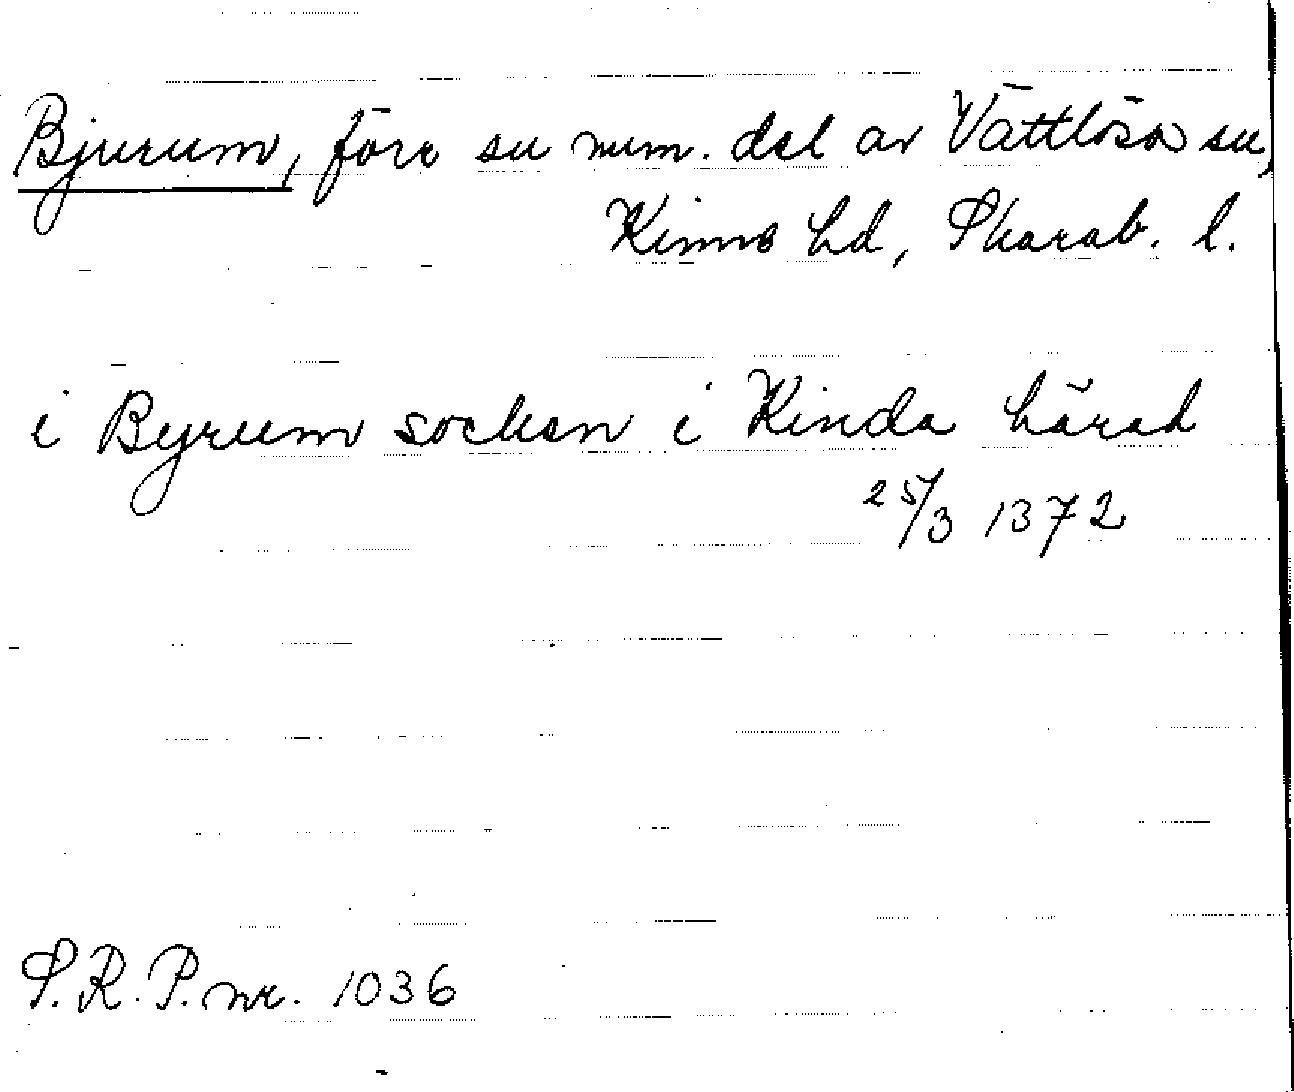 Bjurum, förr sn num. del av Vättlösa sn,
Kinne hd, Skarab. l.
i Byrum socken i Kinda härad
25/3 1372
S.R.P. nr. 1036